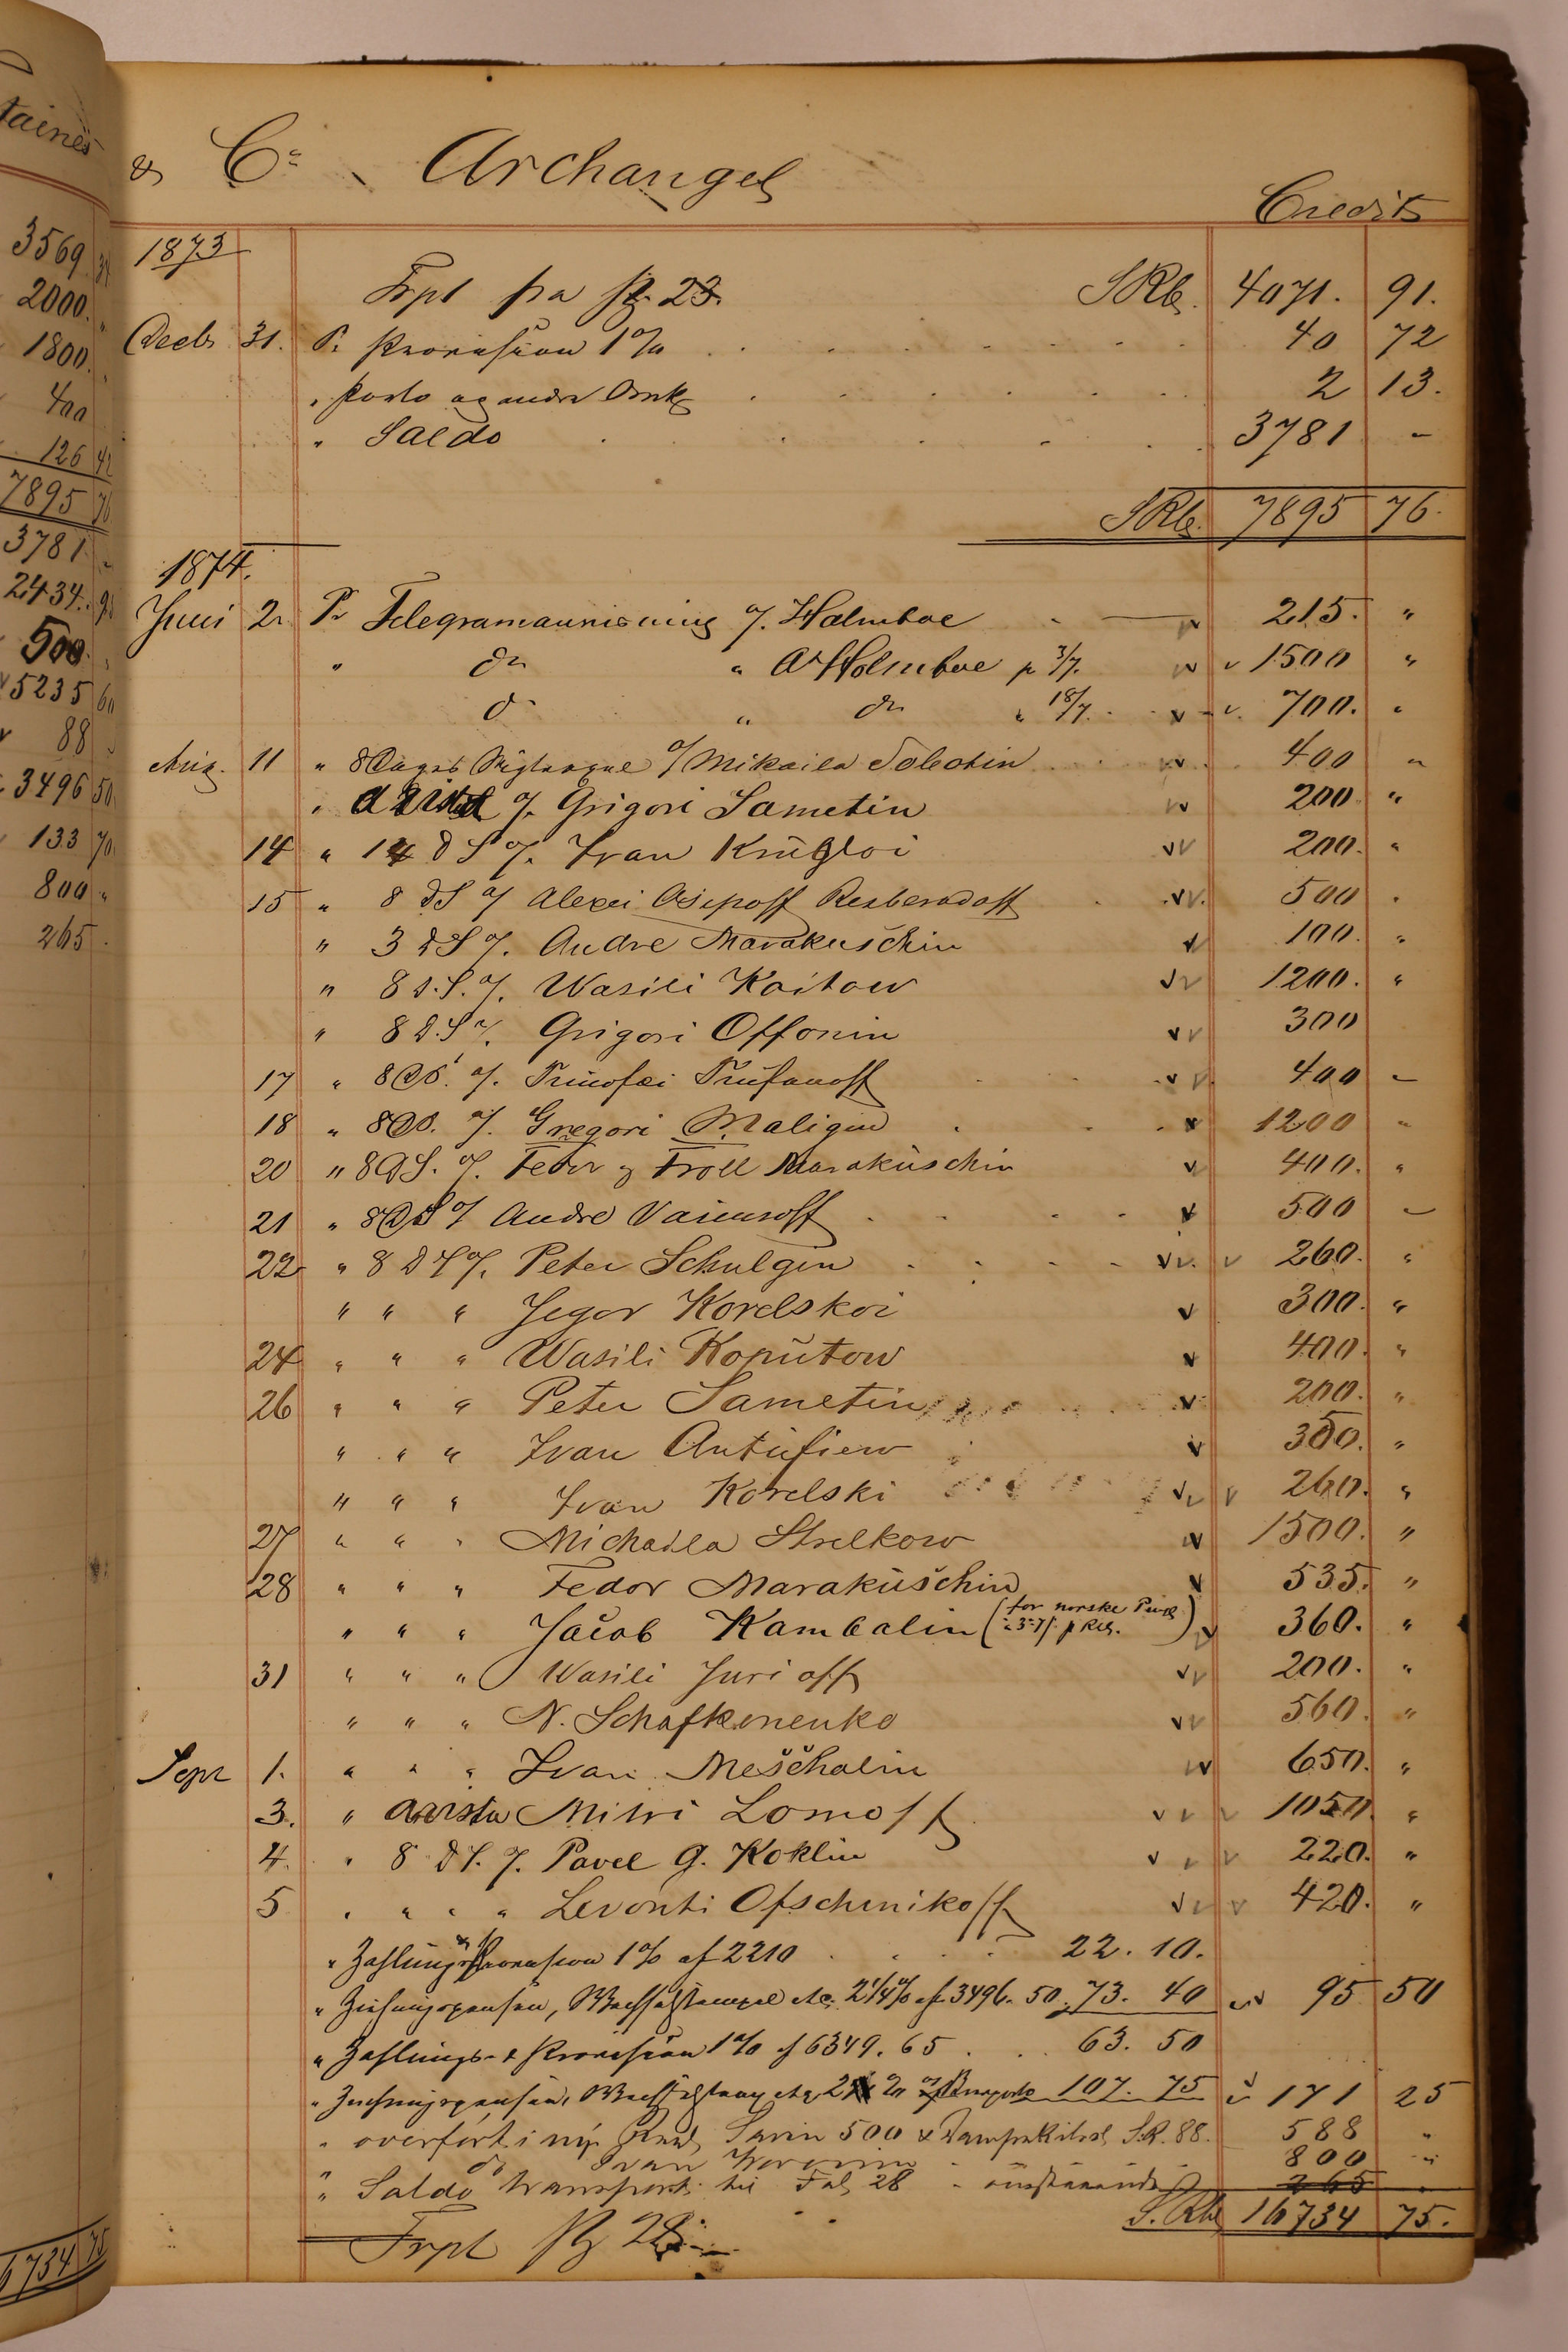 taines
3569
2000.
1800.
400
126 42
7895 76
3781 "
2434.
500.
5235 60
88
3496 50
133 70
800 "
265.
6734 75
& Co. Archangel
Credit
1873
Frpt fra pg 23. SRbl. 4071. 91.
Decb 31. Pr Provision 1% 40 72
" Porto og andre Omk 2 13.
" Saldo 3781 -
SRbl. 7895 76.
1874.
Juni 2 Pr Telegramanvisning o/. Holmboe 215. "
" do " A Holmboe p 3/7. 1500 "
do " do " 18/7. 700. "
Aug. 11 " 8 Dages o/ Mikaila Solotin 400 "
" o/. Grigori Sametin 200 "
14 " 14 d S o/. Ivan Krügloi 200. "
15 " 8 dS o/ Alexei Osipoff 500 "
" 3 dS o/. Andre Marakuschin 100. "
" 8 d.S. o/. Wasili Kaitow 1200. "
" 8 d.S o/. Grigori Offonin 300
17 " 8 DS. o/. Timofei Trüfanoff 400 -
18 " 8 DS. o/. Gregori Maligin 1200 "
20 " 8 dS. o/. Fedor & Froll Maraküschin 400. "
21 " 8 DS o/ Andre 500 -
22 " 8 d S o/. Peter Schulgin 260. "
" " " Jegor Korelskoi 300. "
24 " " " Wasili Kopütow 400. "
26 " " " Peter Sametin 200. "
" " " Ivan Antüfiew 350. "
" " " Ivan Korelski 260. "
27 " " " Michaila Strelkow 1500. "
28 " " " Fedor Maraküschin 535. "
" " " Jacob Kambalin (for norske p Rbl.) 360. "
31 " " " Wasili Jurioff 200. "
" " " N. Schafkonenko 560. "
Sepr 1. " " " Ivan Meščhalin 650. "
3. " Mitri Lomoff 1050. "
4. " 8 d S. o/. Pavel G. Koklin 220. "
5 " " " " Levonti Ofschenikoff 420. "
" Zahlungs Provision 1% af 2210 22. 10.
" 2 1/4% af 3496. 50. 73. 40 95 50
" Zahlungs- & Provision 1% af 6349. 65 63. 50
" 107. 75 171 25
" overfört i ny Savin 500 & S.R. 88. 588 "
do Ivan 800 "
" Saldo transport. til Fol. 28 265
S. Rbl 16734 75.
Frpt pg 28